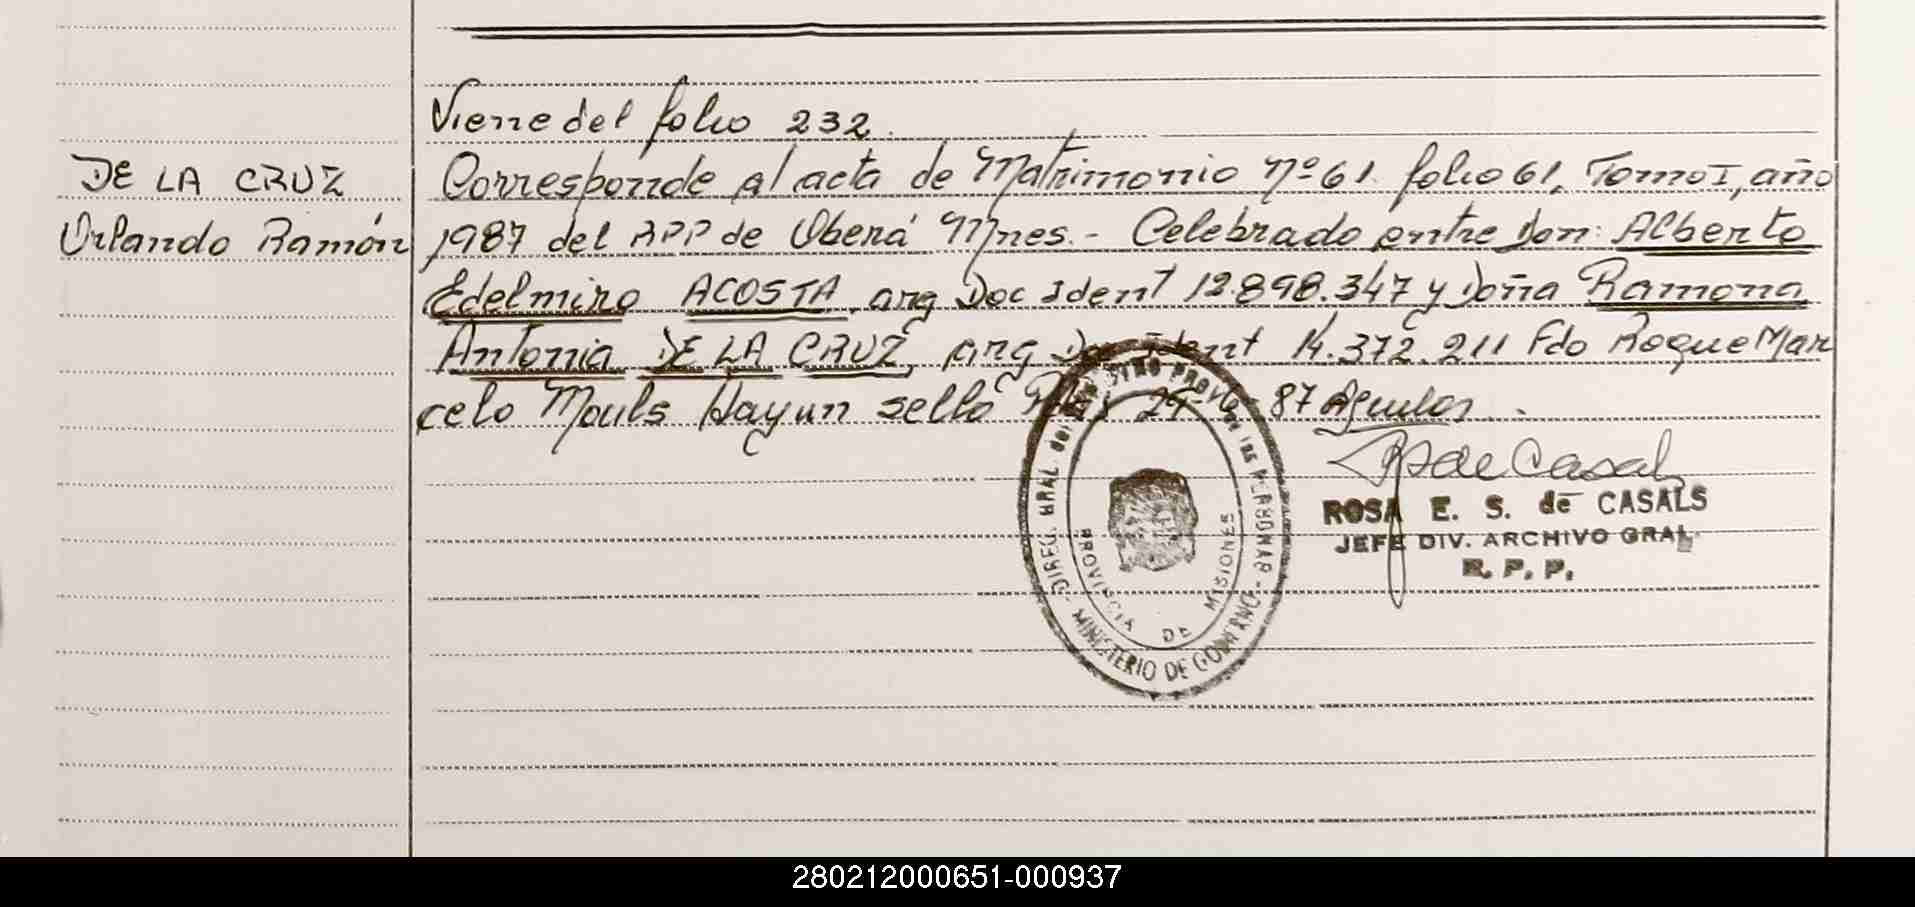 Viene del folio 232.
DE LA CRUZ
Orlando Ramón
Corresponde al acta de Matrimonio Nº 61 folio 61, Tomo I, año
1987 del RPP de Oberá Mnes.- Celebrado entre Don: Alberto
Edelmiro ACOSTA, arg Doc Ident 12.898.347 y Doña Ramona
Antonia DE LA CRUZ, arg Doc Ident 14.372.211 Fdo Roque Mar
celo Mouls Hayun selló 87
R de Casals
ROSA E. S. de CASALS
JEFE DIV. ARCHIVO GRAL
R. P. P.
DIREC. GRAL. del REGISTRO PROV. de las PERSONAS
MINISTERIO DE GOBIERNO
PROVINCIA DE MISIONES
280212000651-000937